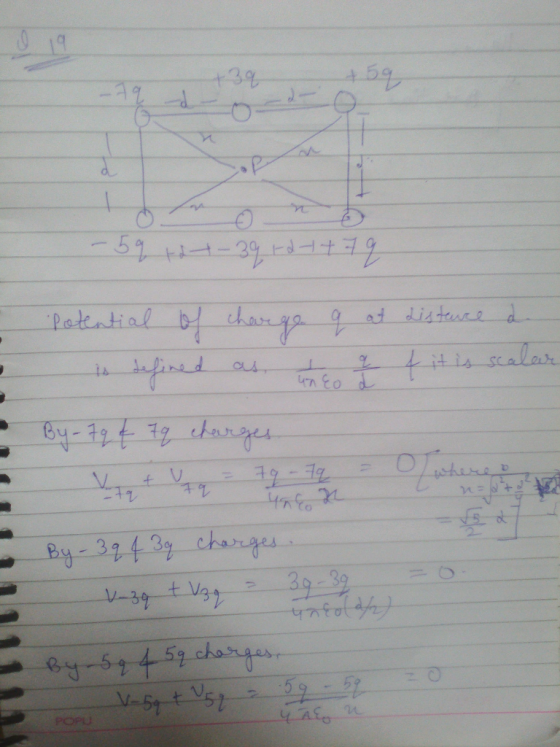 Q 19
-7q +3q +5q
-d- -d-
x x
d P d
x x
-5q +d+ -3q +d+ +7q
Potential of charge q at distance d
is defined as 1/4πε0 q/d & it is scalar
By -7q & 7q charges
V-7q + V7q = 7q - 7q / 4πε0 x = 0 [where
= √5/2 d]
By -3q & 3q charges.
V-3q + V3q = 3q - 3q / 4πε0 (d/2) = 0.
By -5q & 5q charges.
V-5q + V5q = 5q - 5q / 4πε0 x = 0
POPLI